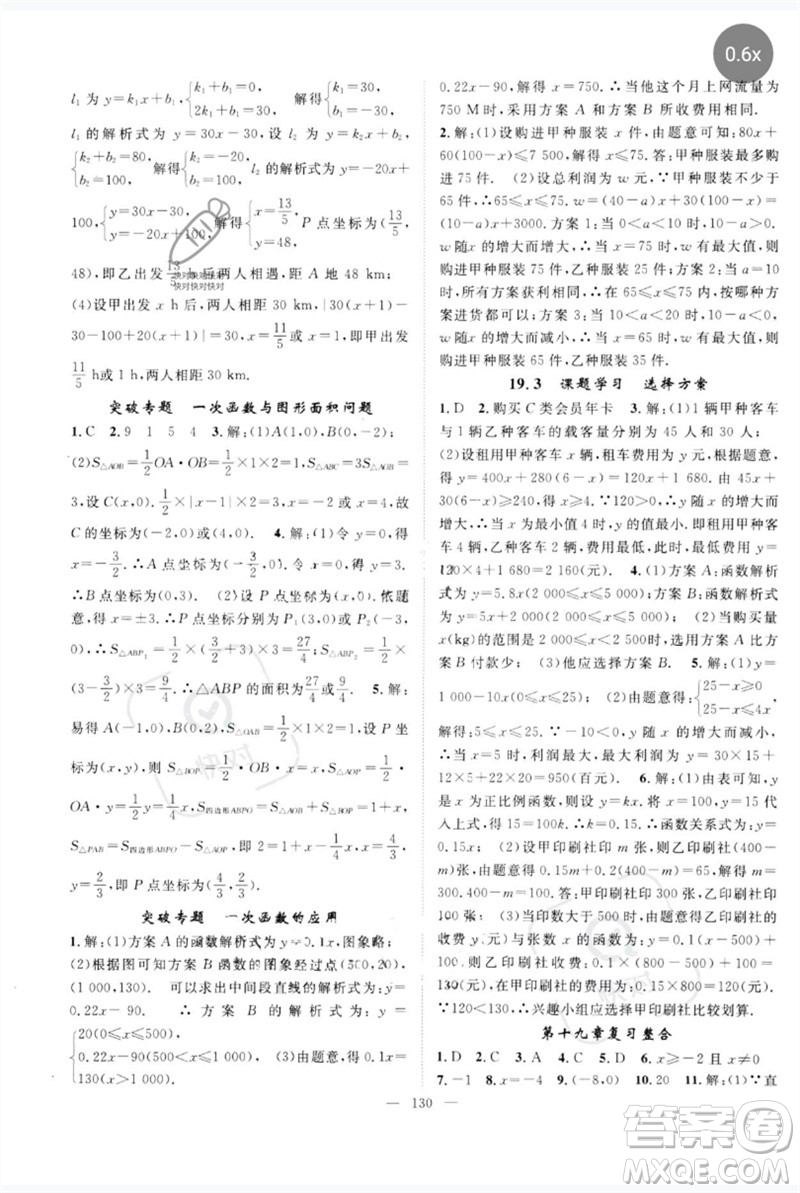 0.6x
l₁ 为 y=k₁x+b₁,{k₁+b₁=0, 2k₁+b₁=30 解得{k₁=30, b₁=-30.
l₁ 的解析式为 y=30x-30 设 l₂ 的解析式为 y=k₂x+b₂
{k₂+b₂=80, b₂=100 解得{k₂=-20, b₂=100. l₂ 的解析式为 y=-20x+
100,{y=30x-30, y=-20x+100, 解得{x=13/5, y=48, P 点坐标为(13/5,
48);即乙出发 13/5 h 后两人相遇,距 A 地 48 km;
快对快对快对
快对快对快对
(4)设甲出发 x h后,两人相距 30 km,则|30(x+1)-
30-100+20x|=30 解得 x=11/5或 x=1.即甲出发
11/5 h或1 h,两人相距 30 km.
突破专题 一次函数与图形面积问题
1.C 2.9 1 5 4 3.解:(1)A(1,0),B(0,-2);
(2)S△AOB=1/2OA·OB=1/2×1×2=1,S△ABC=3S△AOB=
3,设 C(x,0).1/2×|x-1|×2=3,x=-2 或 x=4,故
C 的坐标为(-2,0)或(4,0) 4.解:(1)令 y=0,得
x=-3/2,∴A 点坐标为(-3/2,0),令 x=0,得 y=3.
∴B 点坐标为(0,3). (2)设 P 点坐标为(x,0),依题
意,得 x=±3.∴P 点坐标分别为 P₁(3,0)或 P₂(-3,
0).∴S△ABP₁=1/2×(3/2+3)×3=27/4,S△ABP₂=1/2×
(3-3/2)×3=9/4.∴△ABP的面积为27/4或9/4 5.解:
易得 A(-1,0),B(0,2),S△OAB=1/2×1×2=1,设 P 坐
标为(x,y),由图可知 S△AOB=1/2·OB·x=x,S△AOP=1/2
OA·y=1/2y,S四边形ABPO=S△AOB+S△BOP=1+x,
S△PAB=S四边形ABPO-S△AOP,即 2=1+x-1/2y,得 x=2,
y=2,即 P 点坐标为(2,2).
突破专题 一次函数的应用
1.解:(1)方案 A 的函数解析式为 y=0.1x,图象略;
(2)根据图可知方案 B 函数的图象经过点(500,20),
(1 000,130). 可以求出中间段直线的表达式为 y=
0.22x-90. ∴ 方案 B 的解析式为 y=
{20(0≤x≤500), 0.22x-90(500<x≤1 000), 130(x>1 000). (3)由题意,得:0.1x=
0.22x-90,解得 x=750.∴当他这个月上网流量为
750 M时,采用方案 A 和方案 B 所收费用相同.
2.解:(1)设购进甲种服装 x 件,由题意可知:80x+
60(100-x)≤7 500,解得 x≤75.答:甲种服装最多购
进 75 件. (2)设总利润为 w 元,甲种服装不少于
65 件,∴65≤x≤75,w=(40-a)x+30(100-x)=
(10-a)x+3000.方案 1:当 0<a<10 时,10-a>0,
w 随 x 的增大而增大,∴当 x=75 时,w 有最大值,则
购进甲种服装 75 件,乙种服装 25 件;方案 2:当 a=10
时,所有方案获利相同,∴按哪种方案进货都可以;方
案 3:当 10<a<20 时,10-a<0,w 随 x 的增大而减
小.∴当 x=65 时,w 有最大值,则购进甲种服装 65
件,乙种服装 35 件.
19.3 课题学习 选择方案
1.D 2.购买 C 类会员年卡 3.解:(1)1 辆甲种客车
与 1 辆乙种客车的载客量分别为 45 人和 30 人;
(2)设租用甲种客车 x 辆,租车费用为 y 元,根据题意,
得 y=400x+280(6-x)=120x+1 680.由 45x+
30(6-x)≥240,得 x≥4.∵120>0,∴y 随 x 的增大而
增大,∴当 x 为最小值 4 时,y 的值最小.即租用甲种客
车 4 辆,乙种客车 2 辆,费用最低,此时,最低费用 y=
120×4+1 680=2 160(元). 4.(1)方案 A:函数解析
式为 y=5.8x(2 000≤x≤3 000),方案 B:函数解析式
为 y=5x+2000(2 000≤x≤3 000). (2)当购买量
x(kg)的范围是 2 000≤x<2 500 时,选用方案 A 比方
案 B 付款少; (3)他应选择方案 B. 5.解:(1)y=
1 000-10x(0≤x≤25). (2)由题意得:{25-x≥0 25-x≤4x'
解得:5≤x≤25,∵函数 y 随 x 的增大而减小,
∴当 x=5 时,y 有最大值,最大值 y=30×15+
12×5+22×20=950(百元). 6.解:(1)由表可知,
y 是 x 的正比例函数,设 y=kx.将 x=100,y=15代
入上式,得 15=100k.k=0.15.∴函数关系式为 y=
0.15x. (2)设在甲印刷社印 m 张,则在乙印刷社印
(400-m)张,由题意得 0.15m+0.2(400-m)=65,m=
300.400-m=100.答:甲印刷社印 300 张,乙印刷社印
100 张. (3)当印数大于 500 时,在乙印刷社的
收费 y(元)与张数 x(张)的关系为 y=0.1(x-500)+
0.2×500,在乙印刷社收费:0.1×(800-500)+0.2×
500=130(元),在甲印刷社收费:0.15×800=120(元).
∵120<130,∴兴趣小组应选择甲印刷社比较划算.
第十九章复习整合
1.D 2.D 3.A 4.C 5.D 6.x≥-2 且 x≠0
7.-1 8.-4 9.(-8,0) 10.20 11.解:(1)设直
— 130 —
快对
快对
答案圈
MXQE.COM